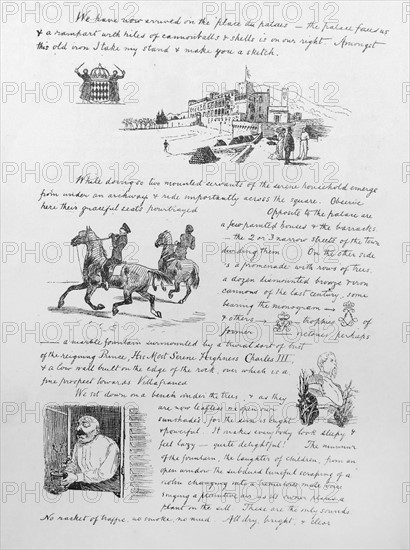 We have now arrived on the place du palais — the palace faces us
& a rampart with piles of cannonballs & shells is on our right. Amongst
this old iron I take my stand & make you a sketch.
While doing so two mounted servants of the serene household emerge
from under an archway & ride importantly across the square. Observe
here their graceful seats pourtrayed
Opposite to the palace are
a few painted houses & the barracks
— the 2 or 3 narrow streets of the town
dividing them. On the other side
is a promenade with rows of trees,
a dozen dismounted bronze & iron
cannons of the last century, some
bearing the monogram →
& others → trophies of
former victories perhaps
— a marble fountain surmounted by a trivial sort of bust
of the reigning Prince, His Most Serene Highness Charles III
& a low wall built on the edge of the rock, over which is a
fine prospect towards Villafranca
We sit down on a bench under the trees & as they
are now leafless we open our
sunshades, for the sun is bright
& powerful. It makes everybody look sleepy &
feel lazy — quite delightful! The murmur
of the fountain, the laughter of children, from an
open window the subdued tuneful scraping of a
violin changing into a tremulous male voice
singing a plaintive air as its owner places a
plant on the sill. These are the only sounds
No racket of traffic, no smoke, no mud. All dry, bright, & clear